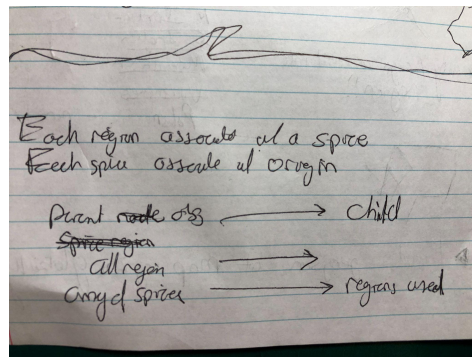 Each region associate w/ a spice
Each spice associate w/ origin
Parent node obj → child
Spice region
all region →
array of spices → regions used